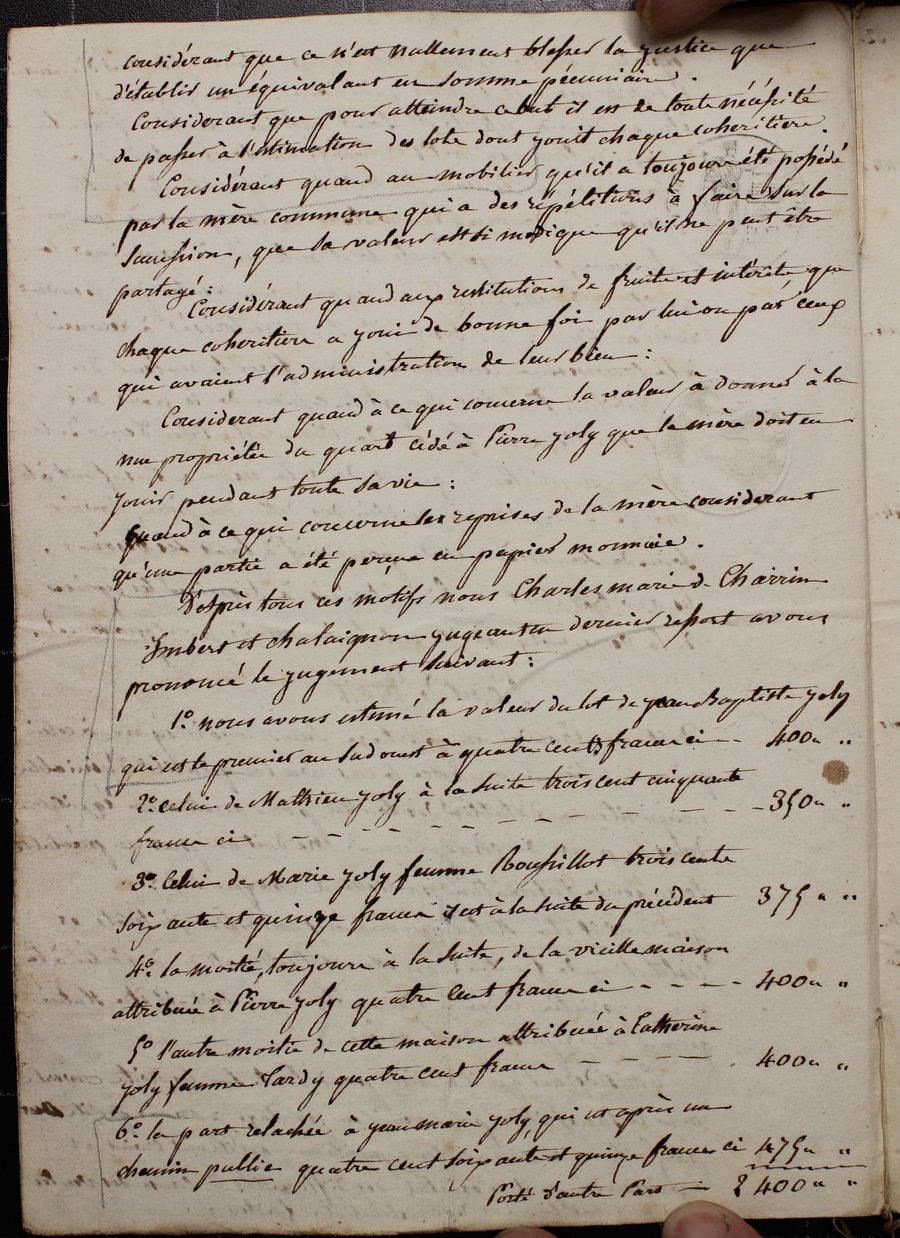 considérant que ce n'est nullement blesser la justice que
d'établir un équivalant en somme pécuniaire.
Considerant que pour atteindre ce but il est de toute nécéssité
de passer à l'estimation des lots dont jouit chaque coheritiere.
Considérant quand au mobilier qu'il a toujours été possédé
par la mère commune qui a des répétitions à faire sur la
succession, que sa valeur est si modique qu'il ne peut être
partagé:
Considérant quand aux restitutions de fruits et intérêts, que
chaque coheritiere a joui de bonne foi par lui ou par ceux
qui avaient l'administration de leur bien:
Considerant quand à ce qui concerne la valeur à donner à la
nue propriétée du quart cédé à Pierre Joly que la mère doit en
jouir pendant toute sa vie:
Quand à ce qui concerne les reprises de la mère considerant
qu'une partie a été perçue en papier monnaie.
D'après tous ces motifs nous Charles marie de Charrin
Imbert et chalaignon jugeant en dernier ressort avons
prononcé le jugement suivant:
1º nous avons estimé la valeur du lot de jean Baptiste Joly
qui est le premier au sud ouest à quatre cents francs ci - 400 " "
2º celui de Mathieu Joly à la suite trois cent cinquante
francs ci - - - - - - - - - - - - 350 " "
3º Celui de Marie Joly femme Roussillot trois cents
soixante et quinze francs il est à la suite du précédent 375 " "
4º la moitié, toujours à la suite, de la vieille maison
attribuée à Pierre Joly quatre cent francs ci - - - - 400 " "
5º l'autre moitié de cette maison attribuée à Catherine
Joly femme Tardy quatre cent francs - - - - - 400 " "
6º la part relachée à jean marie Joly, qui est après un
chemin public quatre cent soixante et quinze francs ci 475 " "
Porté d'autre Part — 2400 " "